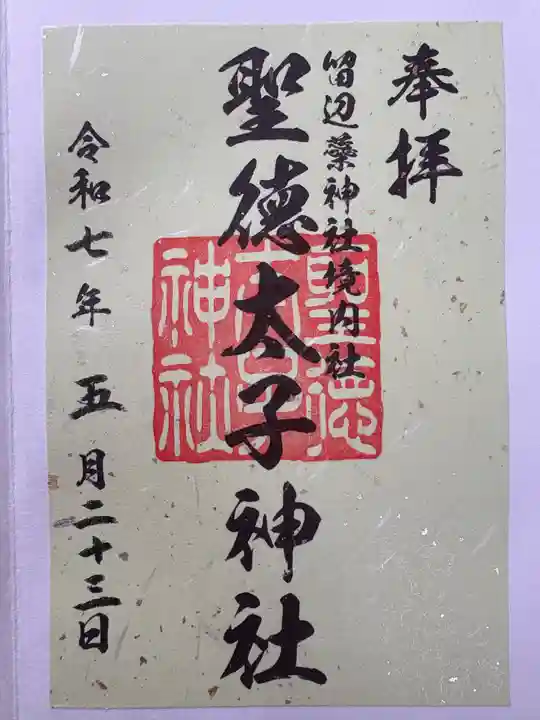 奉拝
留辺蘂神社境内社
聖徳太子神社
聖徳
太子
神社
令和七年五月二十三日